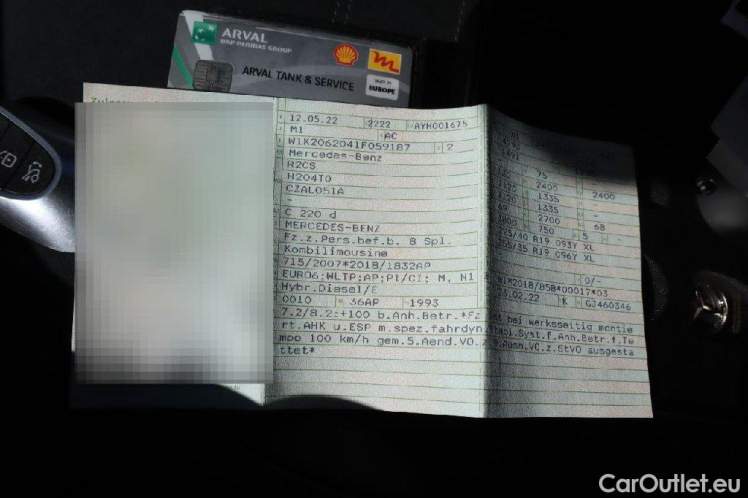 ARVAL
BNP PARIBAS GROUP
ARVAL TANK & SERVICE
EUROPE
12.05.22 2222 AYH001675
M1 AC
W1K2062041F059187 2
Mercedes-Benz
R2CS 75
H204T0 2400 2400
CZAL051A 1335
- 1335
C 220 d 2700 68
MERCEDES-BENZ 750 5
Fz.z.Pers.bef.b. 8 Spl. /40 R19 093Y XL
Kombilimousine /35 R19 096Y XL
715/2007*2018/1832AP
EURO6;WLTP;AP;PI/CI; M, N1 0/-
Hybr.Diesel/E .02.22 K GJ460346
0010 36AP 1993
7.2/8.2:+100 b.Anh.Betr.*Fz bei werksseitig montie
rt.AHK u.ESP m.spez.fahrdyn.Stabi.Syst.f.Anh.Betr.f.Te
mpo 100 km/h gem.5.Aend.VO.z.9.Ausn.VO.z.StVO ausgesta
ttet*
CarOutlet.eu